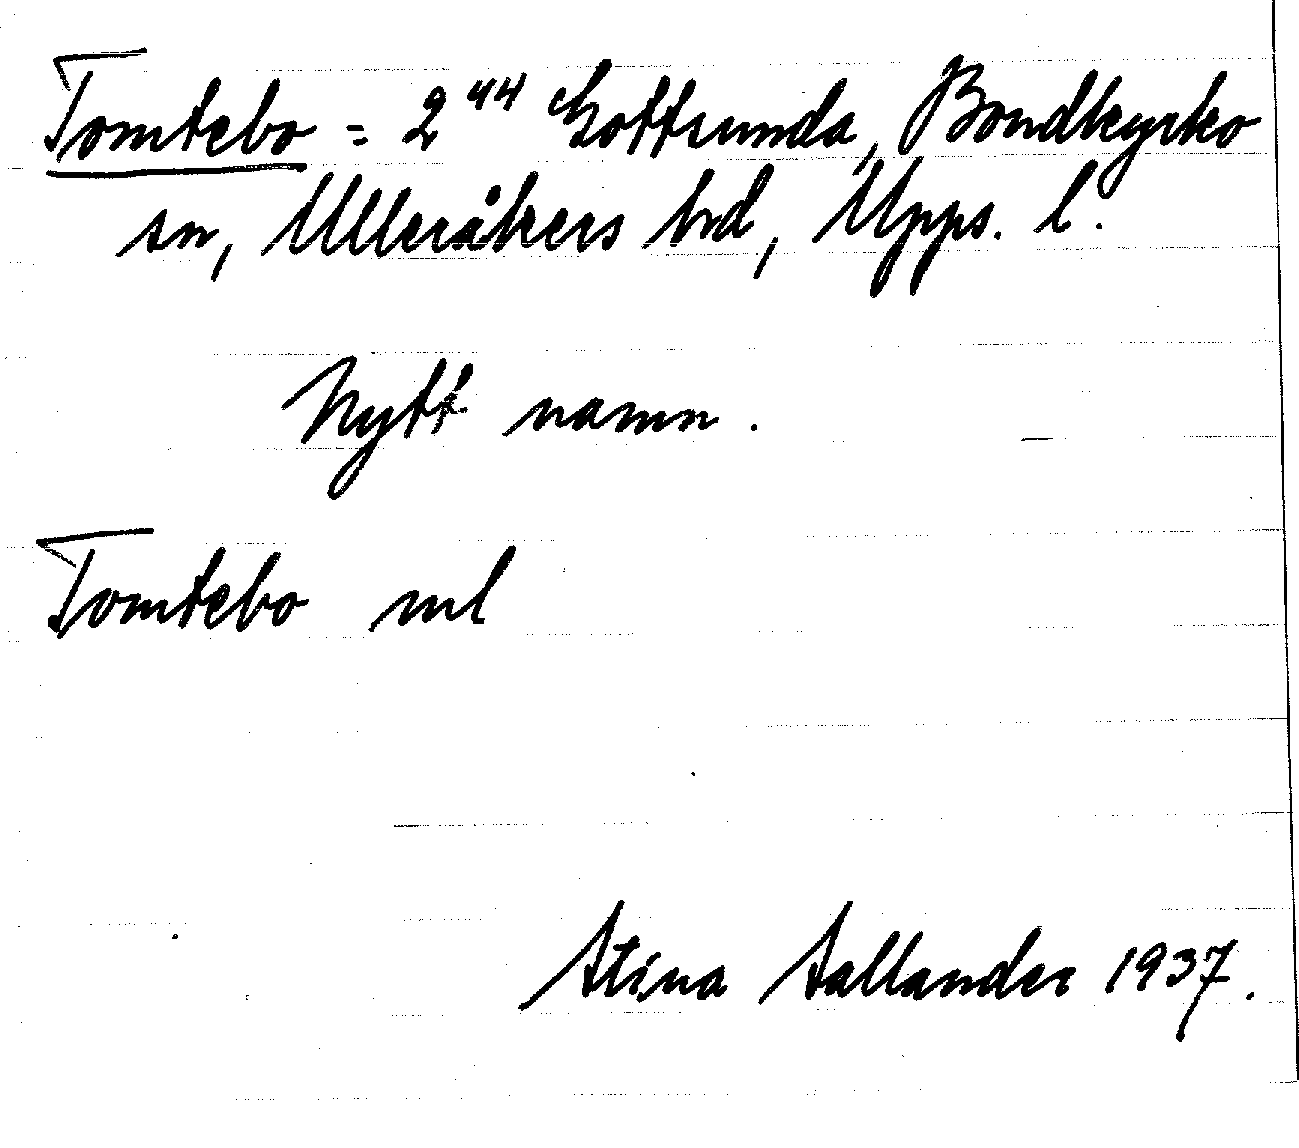 Tomtebo = 2⁴⁴ Gottsunda, Bondkyrko
sn, Ulleråkers hrd, Upps. l.
Nytt namn.
Tomtebo ml
Stina Sallander 1937.